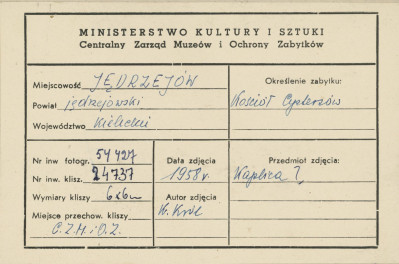 MINISTERSTWO KULTURY I SZTUKI
Centralny Zarząd Muzeów i Ochrony Zabytków
Miejscowość JĘDRZEJÓW
Powiat jędrzejowski
Województwo Kielecki
Określenie zabytku:
Kościół Cystersów
Nr inw fotogr. 54727
Nr inw. klisz. 24737
Wymiary kliszy 6x6
Miejsce przechow. kliszy
C.Z.M.i.O.Z.
Data zdjęcia
1958 r.
Autor zdjęcia
K. Król
Przedmiot zdjęcia:
Kaplica